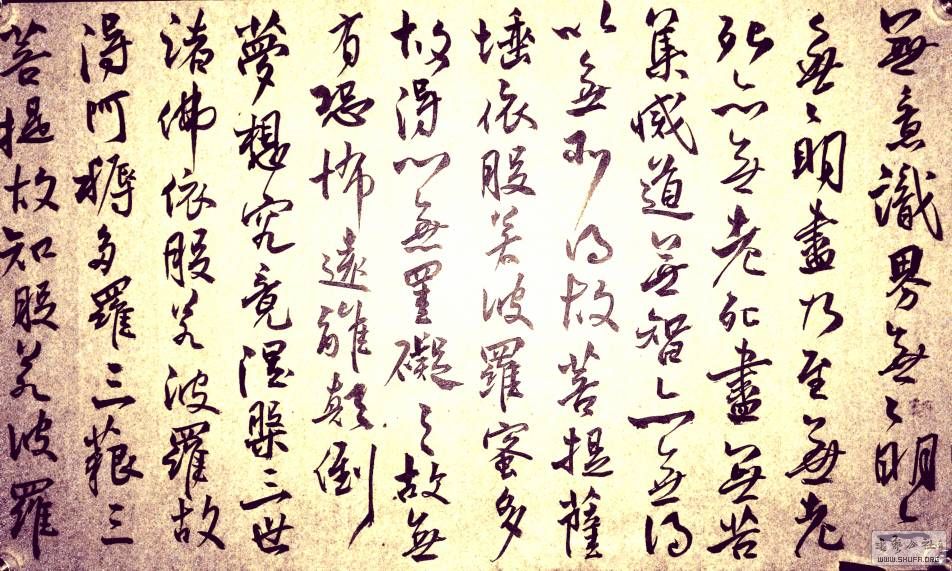 無意識界無〻明亦
無〻明盡乃至無老
死亦無老死盡無苦
集滅道無智亦無得
以無所得故菩提薩
埵依般若波羅蜜多
故得心無罣礙〻故無
有恐怖遠離顛倒
夢想究竟涅槃三世
諸佛依般若波羅故
得阿耨多羅三藐三
菩提故知般若波羅
WWW.SHUFA.ORG